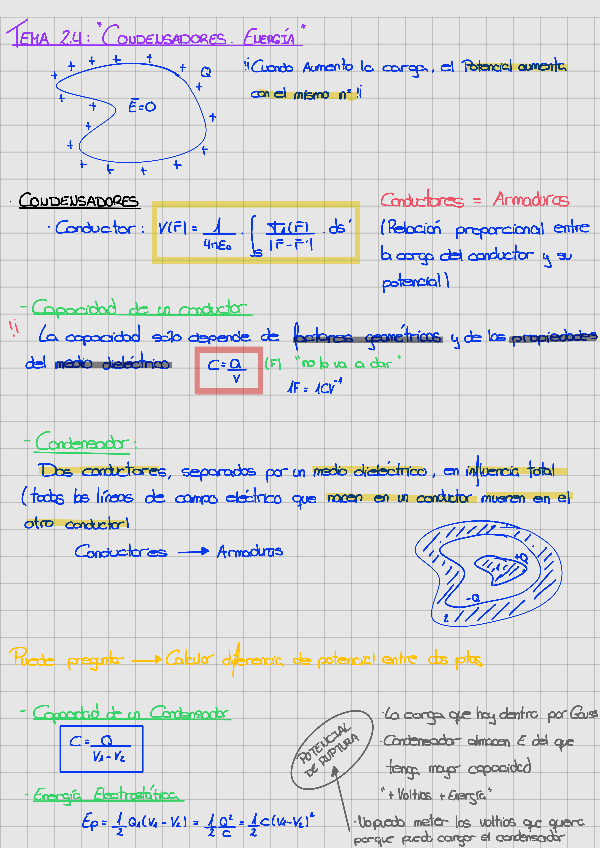 TEMA 2.4: "CONDENSADORES. ENERGÍA"
+ + + + + Q + + + + + + + + + +
E⃗=0
¡¡Cuando Aumento la carga, el Potencial aumenta
con el mismo nº!!
· CONDENSADORES
· Conductor: V(r̄) = 1/4πε₀ · ∫s σ(r̄)/|r̄-r̄'| · ds'
Conductores = Armaduras
(Relación proporcional entre
la carga del conductor y su
potencial)
- Capacidad de un conductor
¡¡ La capacidad solo depende de factores geométricos y de las propiedades
del medio dieléctrico C = Q/V (F) "no lo va a dar"
1F = 1CV⁻¹
- Condensador:
Dos conductores, separados por un medio dieléctrico, en influencia total
(todas las líneas de campo eléctrico que nacen en un conductor mueren en el
otro conductor)
Conductores → Armaduras
+Q
1
-Q
2
Puede preguntar → Calcular diferencia de potencial entre dos ptos
- Capacidad de un Condensador
C = Q/V₁-V₂
POTENCIAL
DE RUPTURA
· La carga que hay dentro por Gauss
· Condensador almacen E del que
tenga mayor capacidad
"+ Voltios + Energía"
- Energía Electrostática
Ep = 1/2 Q₁(V₁-V₂) = 1/2 Q²/C = 1/2 C(V₁-V₂)²
· No puedo meter los voltios que quiera
porque puedo cargar el condensador